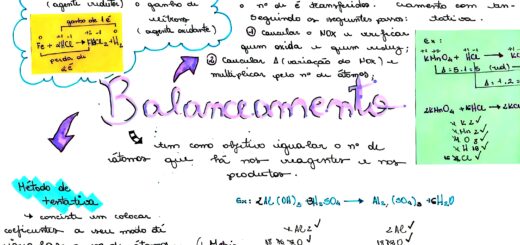 (agente redutor) o ganho de
elétrons
(agente oxidante)
ganho de 1 é
0 +1 -1 +2 -1 0
Fe + 2HCl → FeCl2 + H2
perda de
2é
o nº de é transferidos.
seguindo os seguintes passos:
① calcular o NOX e verificar
quem oxida e quem reduz;
② calcular Δ (variação do NOX) e
multiplicar pelo nº de átomos;
ciamento com ten-
tativa.
ex:
KMnO4 + HCl →
Δ = 5.1 = 5 (red)
Δ = 1.2 =
2KMnO4 + 16HCl → 2KCl
K 2 ✓
Mn 2 ✓
O 8 ✓
H 16 ✓
16 Cl ✓
Balanceamento
tem como objetivo igualar o nº de
átomos que há nos reagentes e nos
produtos.
Método de
tentativa
→ consiste em colocar
coeficientes a seu modo até
Ex: 2Al(OH)3 + 3H2SO4 → Al2(SO4)3 + 6H2O
Al 2 ✓
2 Al ✓